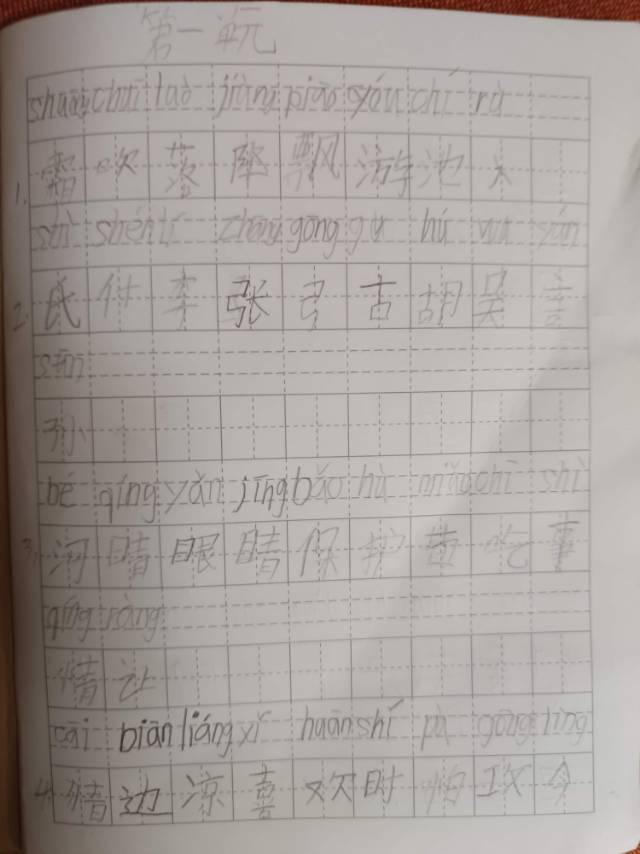 第一单元
shuāng chuī luò jiàng piāo yóu chí rù
1. 霜 吹 落 降 飘 游 池 入
shì shén lǐ zhāng gōng gǔ hú wú yán
2. 氏 什 李 张 弓 古 胡 吴 言
sūn
孙
hé qíng yǎn jīng bǎo hù chī shì
3. 河 晴 眼 睛 保 护 吃 事
qíng ràng
情 让
cāi biān liáng xǐ huān shí pà gōng líng
4. 猜 边 凉 喜 欢 时 怕 攻 令